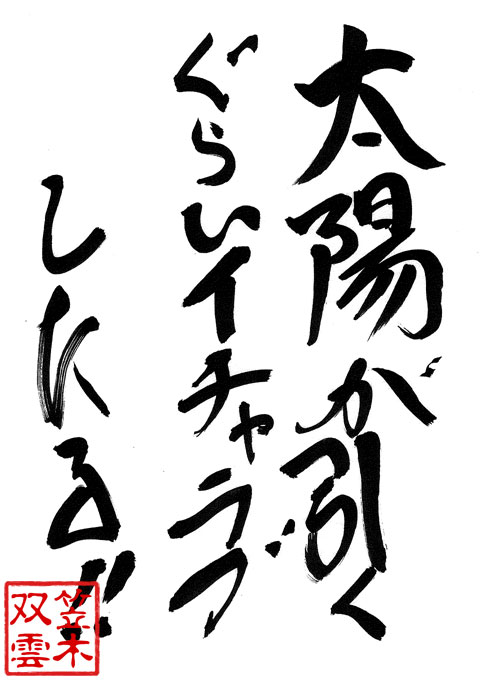 太陽が引く
ぐらいイチャラブ
したる!!
笠木
双雲